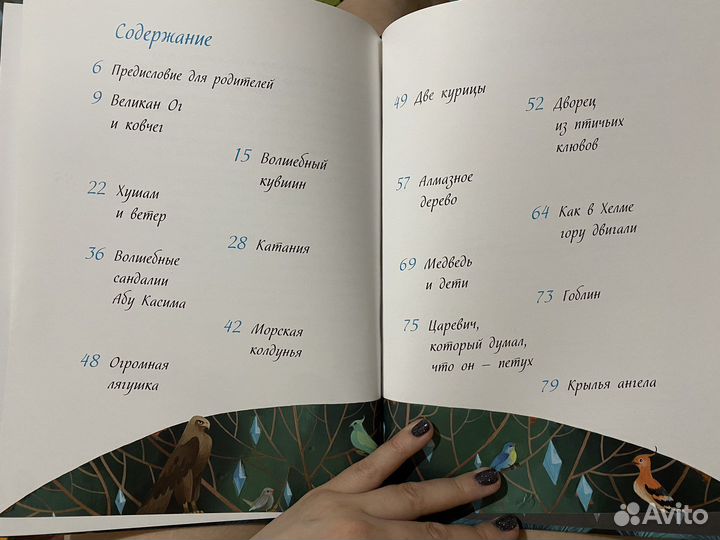 Содержание
6 Предисловие для родителей
9 Великан Ог
и ковчег
15 Волшебный
кувшин
22 Хушам
и ветер
28 Катания
36 Волшебные
сандалии
Абу Касима
42 Морская
колдунья
48 Огромная
лягушка
49 Две курицы
52 Дворец
из птичьих
клювов
57 Алмазное
дерево
64 Как в Хелме
гору двигали
69 Медведь
и дети
73 Гоблин
75 Царевич,
который думал,
что он – петух
79 Крылья ангела
Avito